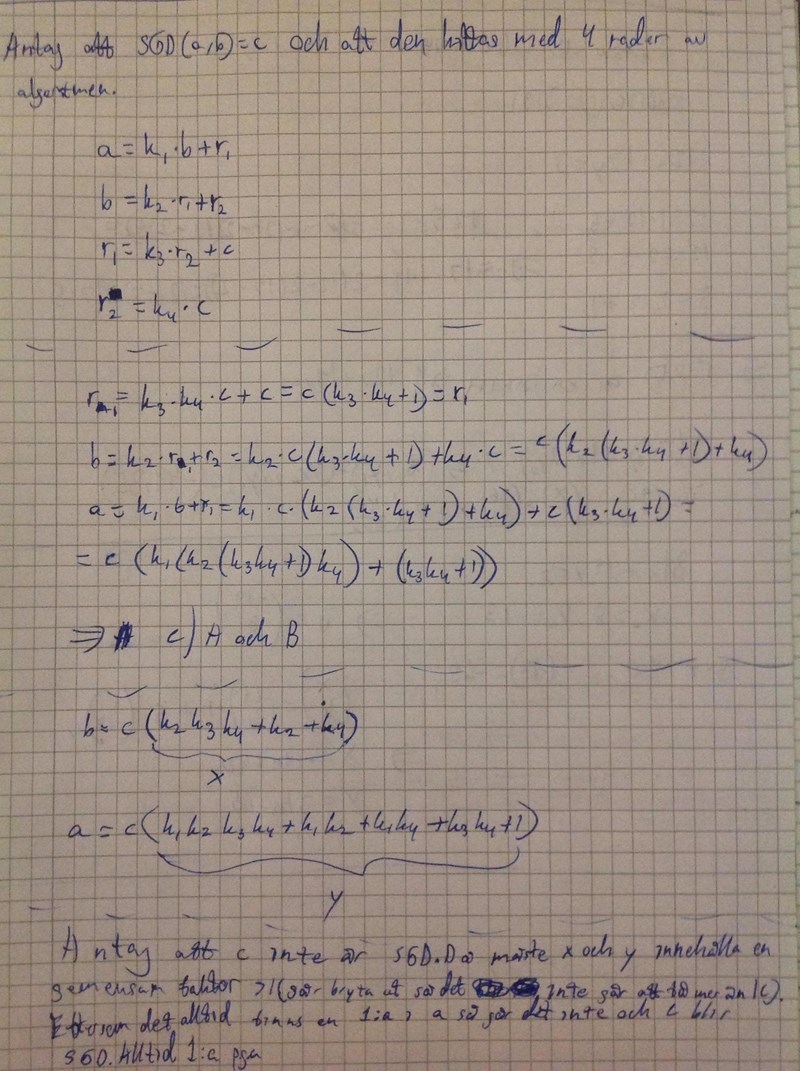 Antag att SGD(a,b)=c och att den hittas med 4 rader av
algoritmen.
a = k₁·b+r₁
b = k₂·r₁+r₂
r₁ = k₃·r₂+c
r₂ = k₄·c
r₁ = k₃·k₄·c + c = c(k₃·k₄+1) = r₁
b = k₂·r₁+r₂ = k₂·c(k₃·k₄+1)+k₄·c = c(k₂(k₃·k₄+1)+k₄)
a = k₁·b+r₁ = k₁·c·(k₂(k₃·k₄+1)+k₄)+c(k₃·k₄+1) =
= c(k₁(k₂(k₃k₄+1)k₄)+(k₃k₄+1))
⇒ c) A och B
b = c(k₂k₃k₄+k₂+k₄)
x
a = c(k₁k₂k₃k₄+k₁k₂+k₁k₄+k₃k₄+1)
y
Antag att c inte är SGD. Då måste x och y innehålla en
gemensam faktor >1 (går bryta ut så det inte går att mer än 1c).
Eftersom det alltid finns en 1:a i a så går det inte och c blir
SGD. Alltid 1:a pga